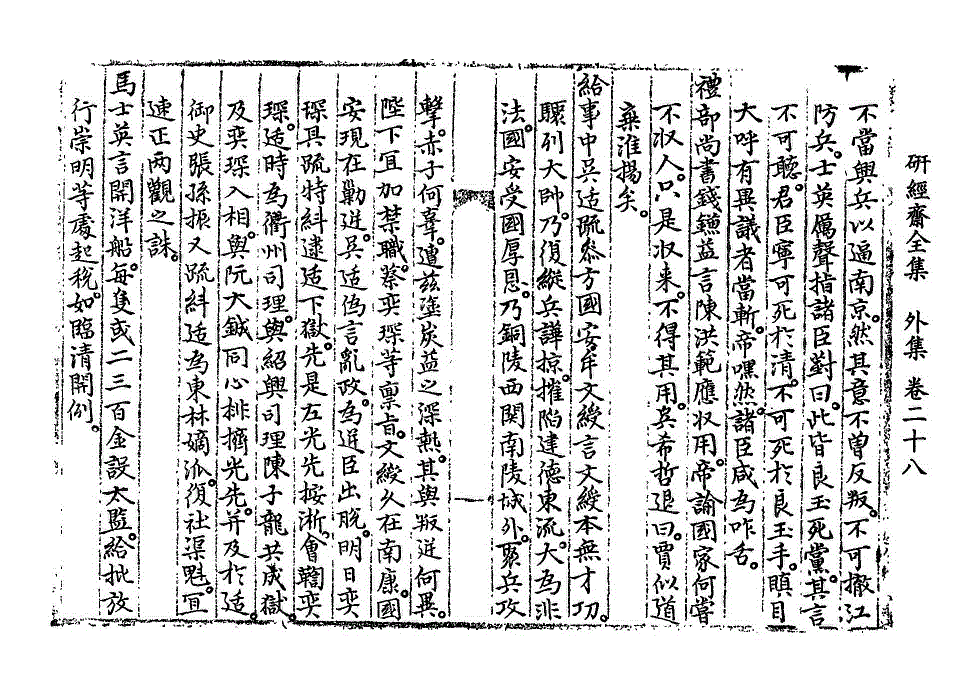 研經齋全集 外集 卷二十八
不當興兵以逼南京。然其意不曾反叛。不可撤江
防兵。士英厲聲指諸臣對曰。此皆良玉死黨。其言
不可聽。君臣寧可死於清。不可死於良玉手。瞋目
大呼有異議者當斬。帝嘿然。諸臣咸為咋舌。
禮部尚書錢鐮益言陳洪範應収用。帝諭國家何嘗
不収人。只是収来。不得其用。吳希哲退曰。賈似道
棄淮揚矣。
給事中吳适疏叅方國安牟文綬言文綬本無才功。
驟列大帥。乃復縱兵譁掠。摧陷建德東流。大為非
法。國安受國厚恩。乃銅陵西関南陵城外。聚兵攻
擊。赤子何辜。遭玆塗炭益之深熱。其與叛逆何異。
陛下宜加禁職。蔡奕琛等稟旨。文綬久在南康。國
安現在勦逆。吳适僞言亂政。為逆臣出脫。明日奕
琛具疏特糾逮适下獄。先是左光先按浙。會鞫奕
琛。适時為衢州司理。與紹興司理陳子龍共成獄。
及奕琛入相。與阮大鋮同心排擠光先。并及於适。
御史張孫振又疏糾适為東林嫡派。復社渠魁。宜
速正兩觀之誅。
馬士英言開洋船。每隻或二三百金設太監。給批放
行崇明等處起稅。如臨清開例。